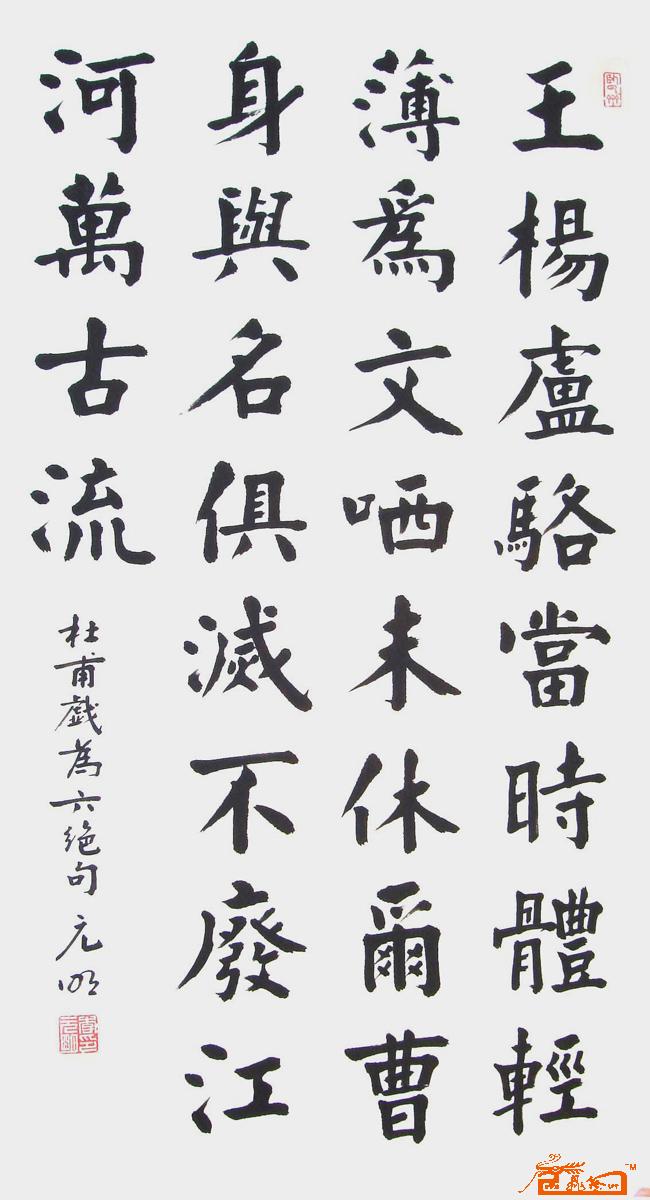 王楊盧駱當時體輕
薄爲文哂未休爾曹
身與名俱滅不廢江
河萬古流
杜甫戲為六絕句 元明